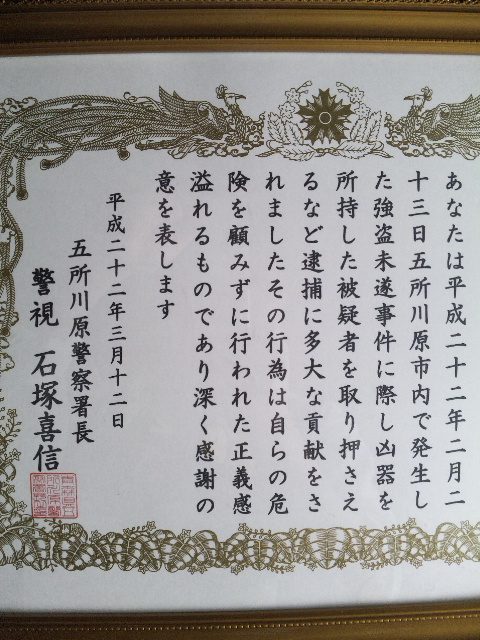 あなたは平成二十二年二月二
十三日五所川原市内で発生し
た強盗未遂事件に際し凶器を
所持した被疑者を取り押さえ
るなど逮捕に多大な貢献をさ
れましたその行為は自らの危
険を顧みずに行われた正義感
溢れるものであり深く感謝の
意を表します
平成二十二年三月十二日
五所川原警察署長
警視 石塚喜信